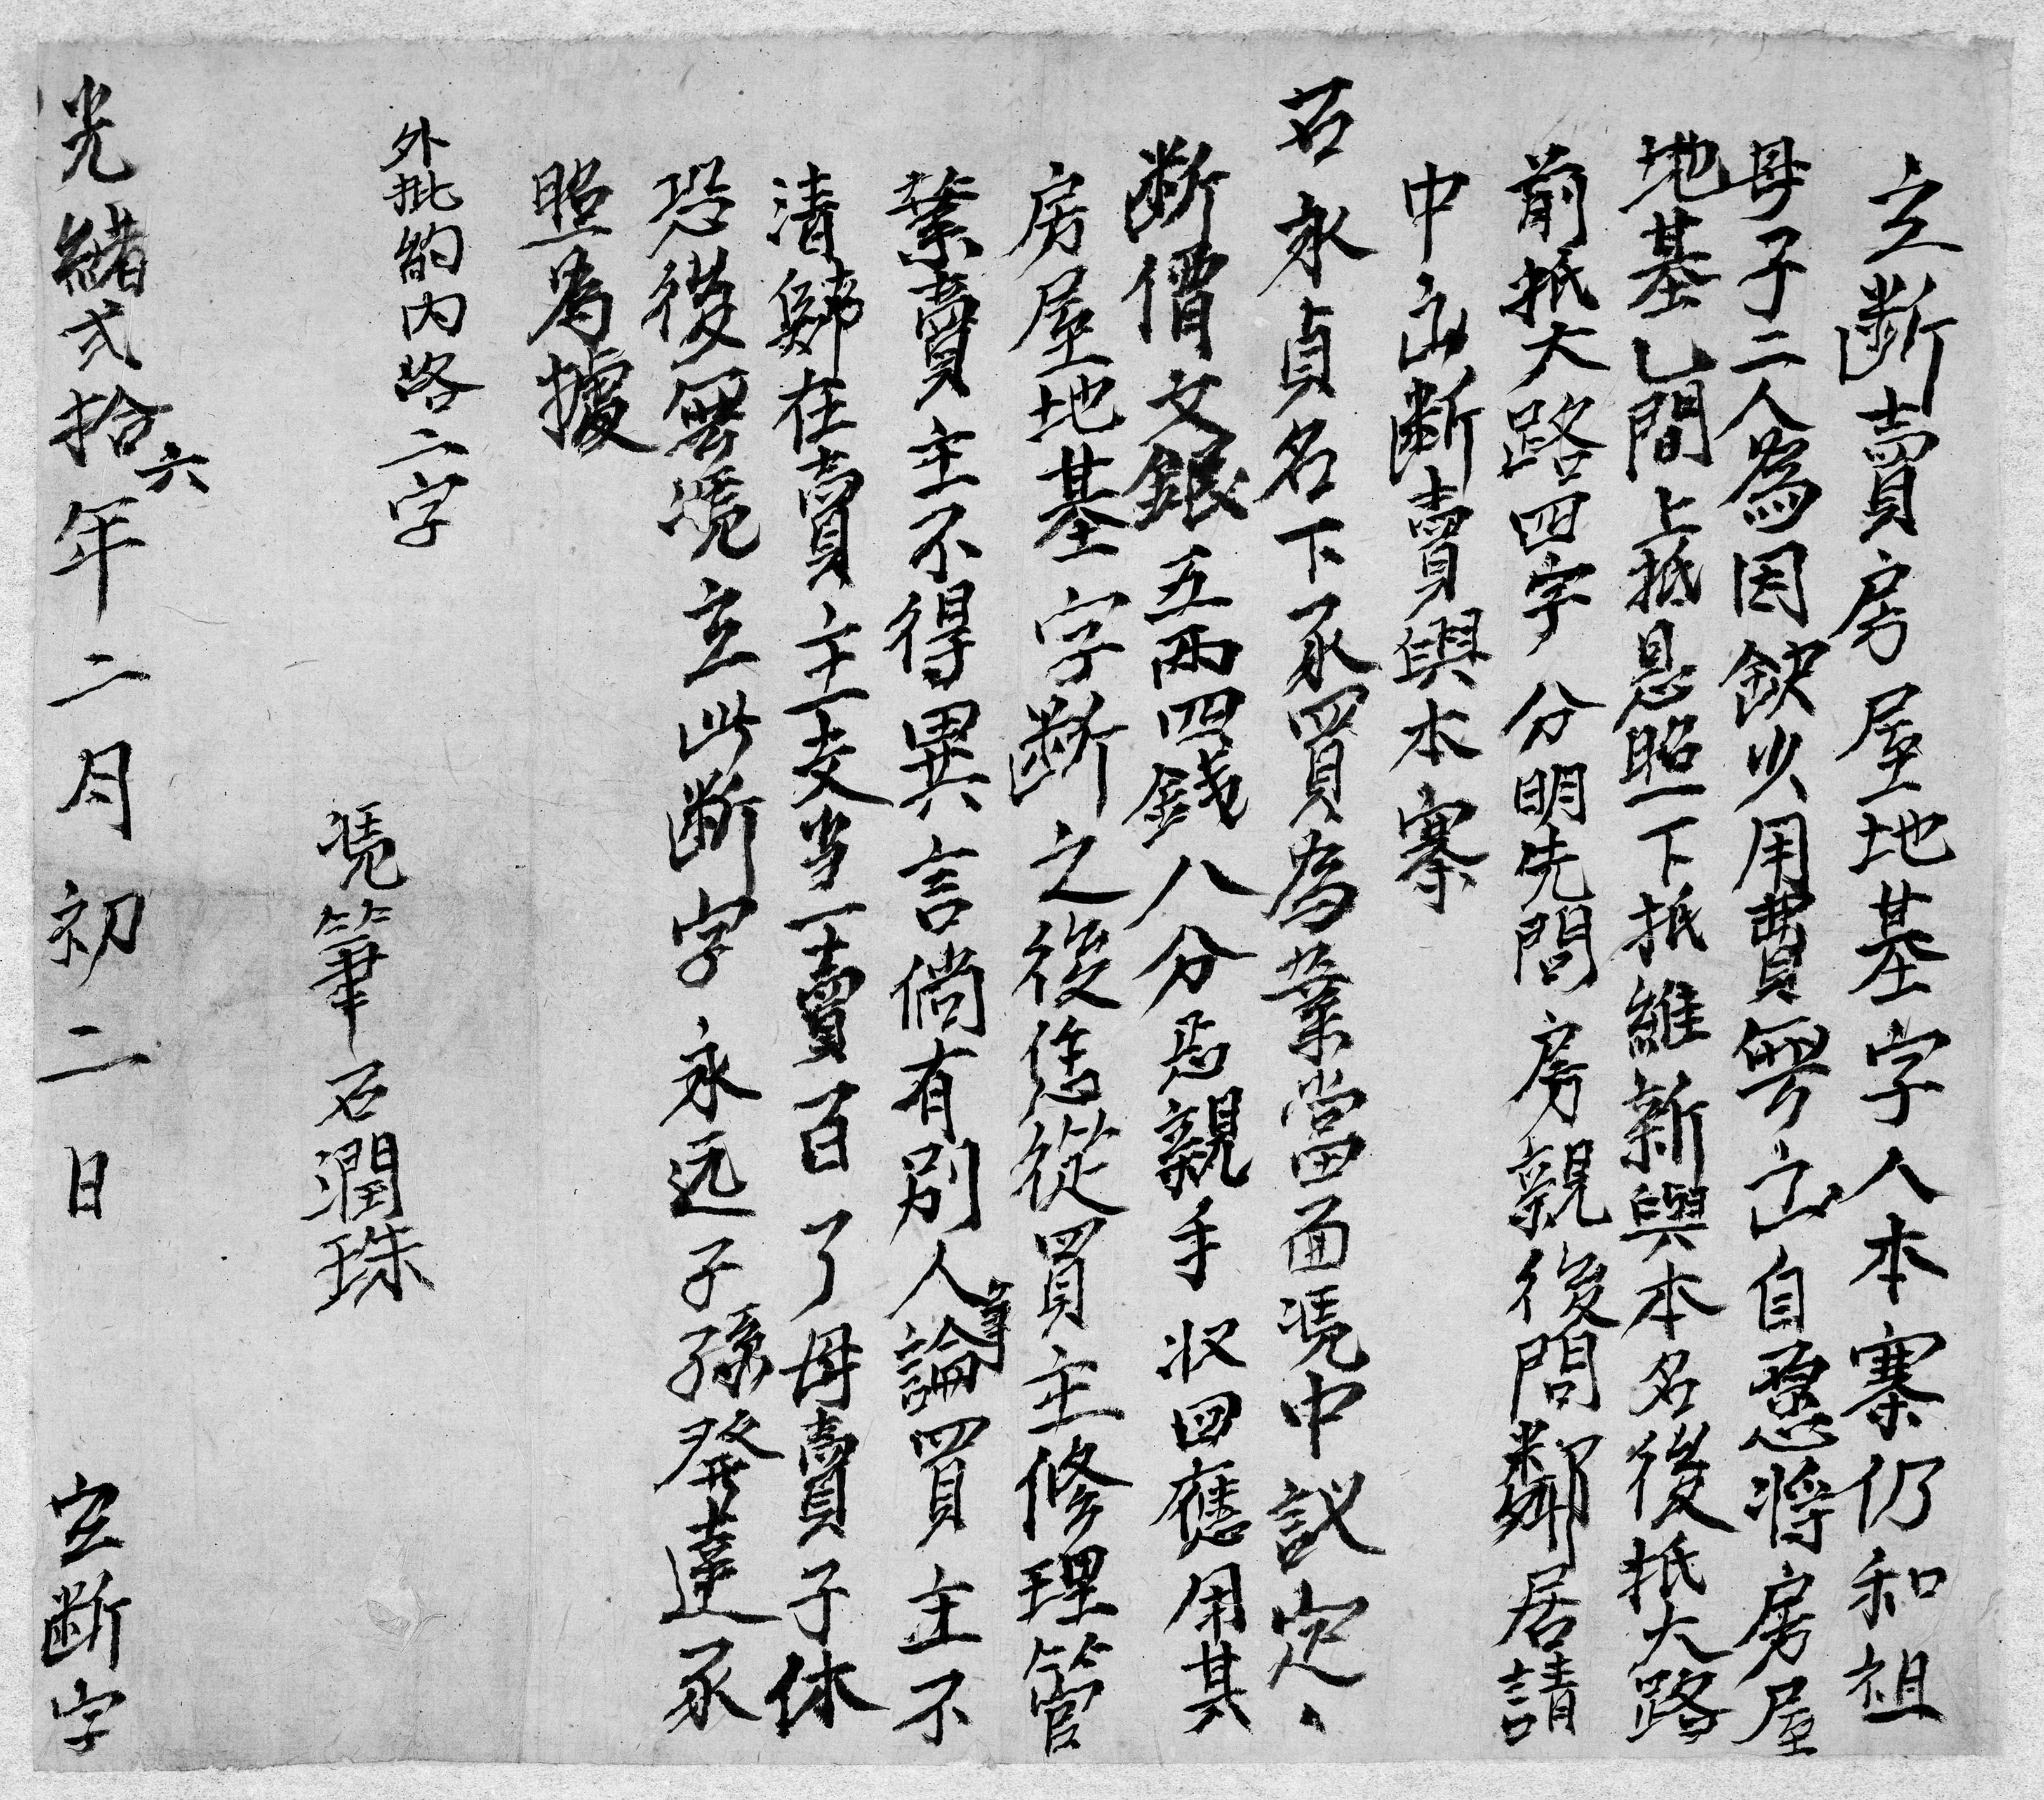 立断賣房屋地基字人本寨仍和祖
母子二人為因缺少用費無出自愿將房屋
地基乙間上抵恳照一下抵維新與本名後抵大路
前抵大路四字分明先問房親後問鄰居請
中出断賣與本寨
石永貞名下承買為業當面凴中議定、
断價文銀五兩四錢八分恳親手收回應用其
房屋地基字断之後恁從買主修理管
業賣主不得異言倘有別人爭論買主不
清歸在賣主支当一賣百了母賣子休
恐後無凴立此断字永远子孫發達承
照為據
外批約内路二字
凴筆石潤珠
光緒弍拾六年二月初二日 立断字